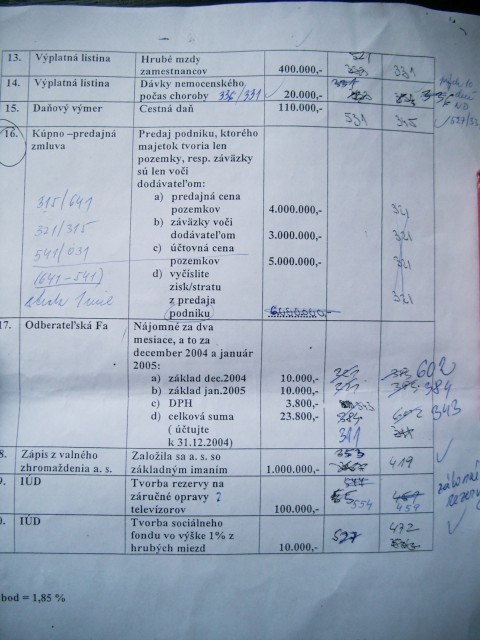 13. Výplatná listina Hrubé mzdy
zamestnancov 400.000,- 331
14. Výplatná listina Dávky nemocenského,
počas choroby 336/331 20.000,-
15. Daňový výmer Cestná daň 110.000,- 531 345
16. Kúpno –predajná Predaj podniku, ktorého
zmluva majetok tvoria len
pozemky, resp. záväzky
sú len voči
dodávateľom:
315/641 a) predajná cena
pozemkov 4.000.000,- 321
321/315 b) záväzky voči
dodávateľom 3.000.000,- 321
541/031 c) účtovná cena
pozemkov 5.000.000,- 321
(641-541) d) vyčíslite
zisk/stratu
strata 1 mil z predaja 321
podniku
17. Odberateľská Fa Nájomné za dva
mesiace, a to za
december 2004 a január
2005:
a) základ dec.2004 10.000,- 602
b) základ jan.2005 10.000,- 384
c) DPH 3.800,- 343
d) celková suma 23.800,-
( účtujte 311
k 31.12.2004)
8. Zápis z valného Založila sa a. s. so 353
zhromaždenia a. s. základným imaním 1.000.000,- 419
9. IÚD Tvorba rezervy na
záručné opravy ?
televízorov 100.000,- 554 459
0. IÚD Tvorba sociálneho 472
fondu vo výške 1% z 527
hrubých miezd 10.000,-
bod = 1,85 %